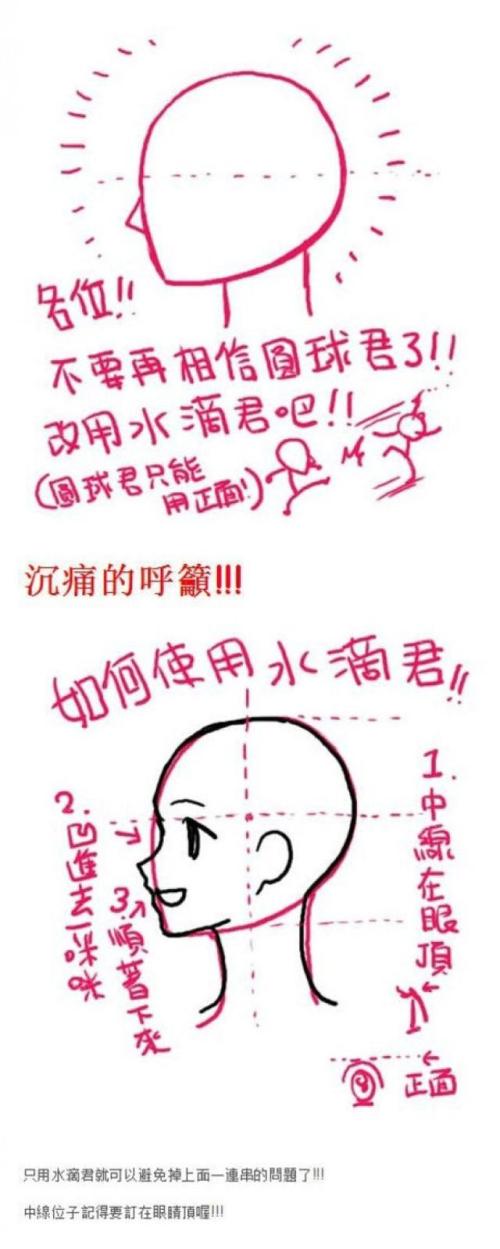 各位!!
不要再相信圓球君了!!
改用水滴君吧!!
(圓球君只能
用正面!)
沉痛的呼籲!!!
如何使用水滴君!!
1.中線在眼頂
2.凹進去一咪咪
3.順著下來
正面
只用水滴君就可以避免掉上面一連串的問題了!!!
中線位子記得要訂在眼睛頂喔!!!